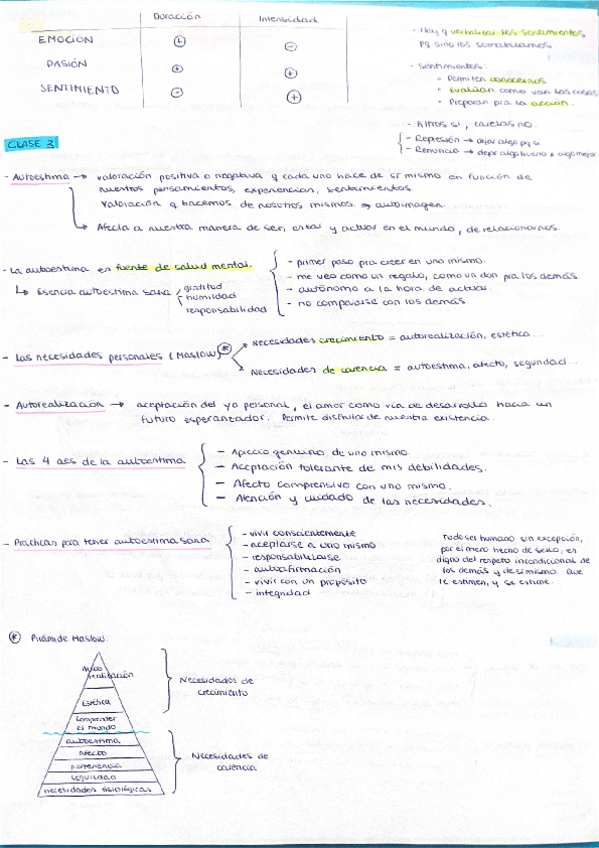 Duración Intensidad
EMOCIÓN + -
PASIÓN + +
SENTIMIENTO - +
- Hay q verbalizar los sentimientos,
pq sino los somatizamos
- Sentimientos:
• Permiten conocernos
• Evalúan como van las cosas
• Preparan pra la acción.
- Filtros sí, caretas no.
- Represión → dejar algo pq sí
- Renuncia → dejar algo bueno x algo mejor
CLASE 3
- Autoestima → valoración positiva o negativa q cada uno hace de sí mismo en función de
nuestros pensamientos, experiencias, sentimientos
Valoración q hacemos de nosotros mismos → autoimagen.
Afecta a nuestra manera de ser, estar y actuar en el mundo, de relacionarnos.
- La autoestima es fuente de salud mental.
↳ Esencia autoestima sana
gratitud
humildad
responsabilidad
- primer paso pra creer en uno mismo.
- me veo como un regalo, como un don pra los demás.
- autónomo a la hora de actuar.
- no compararse con los demás.
- Las necesidades personales (Maslow) *
Necesidades crecimiento = autorealización, estética...
Necesidades de carencia = autoestima, afecto, seguridad...
- Autorealización → aceptación del yo personal, el amor como vía de desarrollo hacia un
futuro esperanzador. Permite disfrutar de nuestra existencia.
- Las 4 aes de la autoestima
- Aprecio genuino de uno mismo.
- Aceptación tolerante de mis debilidades.
- Afecto comprensivo con uno mismo.
- Atención y cuidado de las necesidades.
- Prácticas para tener autoestima sana
- vivir conscientemente
- aceptarse a uno mismo
- responsabilizarse
- autoafirmación
- vivir con un propósito
- integridad
Todo ser humano sin excepción,
por el mero hecho de serlo, es
digno del respeto incondicional de
los demás y de sí mismo. Que
le estimen, y se estime.
* Pirámide Maslow:
Auto
realización
Estética
Comprender
el mundo
Necesidades de
crecimiento
autoestima
Afecto
pertenencia
seguridad
necesidades fisiológicas
Necesidades de
carencia